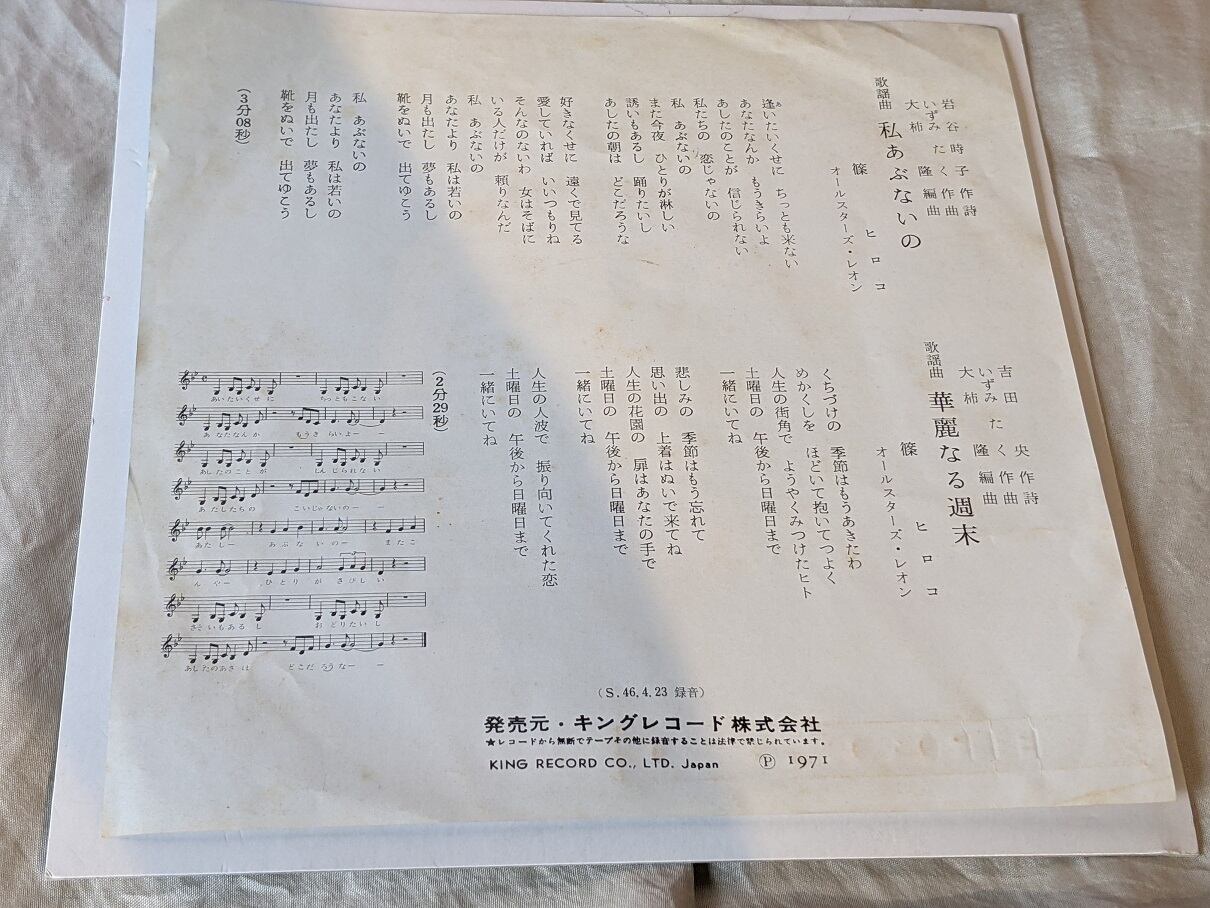 岩谷時子 作詩
いずみたく 作曲
大柿 隆 編曲
歌謡曲 私あぶないの
篠 ヒロコ
オールスターズ・レオン
逢いたいくせに ちっとも来ない
あなたなんか もうきらいよ
あしたのことが 信じられない
私たちの 恋じゃないの
私 あぶないの
また今夜 ひとりが淋しい
誘いもあるし 踊りたいし
あしたの朝は どこだろうな
好きなくせに 遠くで見てる
愛していれば いいつもりね
そんなのないわ 女はそばに
いる人だけが 頼りなんだ
私 あぶないの
あなたより 私は若いの
月も出たし 夢もあるし
靴をぬいで 出てゆこう
私 あぶないの
あなたより 私は若いの
月も出たし 夢もあるし
靴をぬいで 出てゆこう
(3分08秒)
吉田 央 作詩
いずみたく 作曲
大柿 隆 編曲
歌謡曲 華麗なる週末
篠 ヒロコ
オールスターズ・レオン
くちづけの 季節はもうあきたわ
めかくしを ほどいて抱いてつよく
人生の街角で ようやくみつけたヒト
土曜日の 午後から日曜日まで
一緒にいてね
悲しみの 季節はもう忘れて
思い出の 上着はぬいで来てね
人生の花園の 扉はあなたの手で
土曜日の 午後から日曜日まで
一緒にいてね
人生の人波で 振り向いてくれた恋
土曜日の 午後から日曜日まで
一緒にいてね
(2分29秒)
あいたいくせに ちっともこない
あなたなんか もうきらいよーー
あしたのことが しんじられない
あたしたちの こいじゃないのーー
あたしー あぶないのー またこ
んやー ひとりが さびしい
さそいもあるし おどりたいし
あしたのあさは どこだろうなーー
(S.46.4.23 録音)
発売元・キングレコード株式会社
★レコードから無断でテープその他に録音することは法律で禁じられています。
KING RECORD CO., LTD. Japan Ⓟ 1971